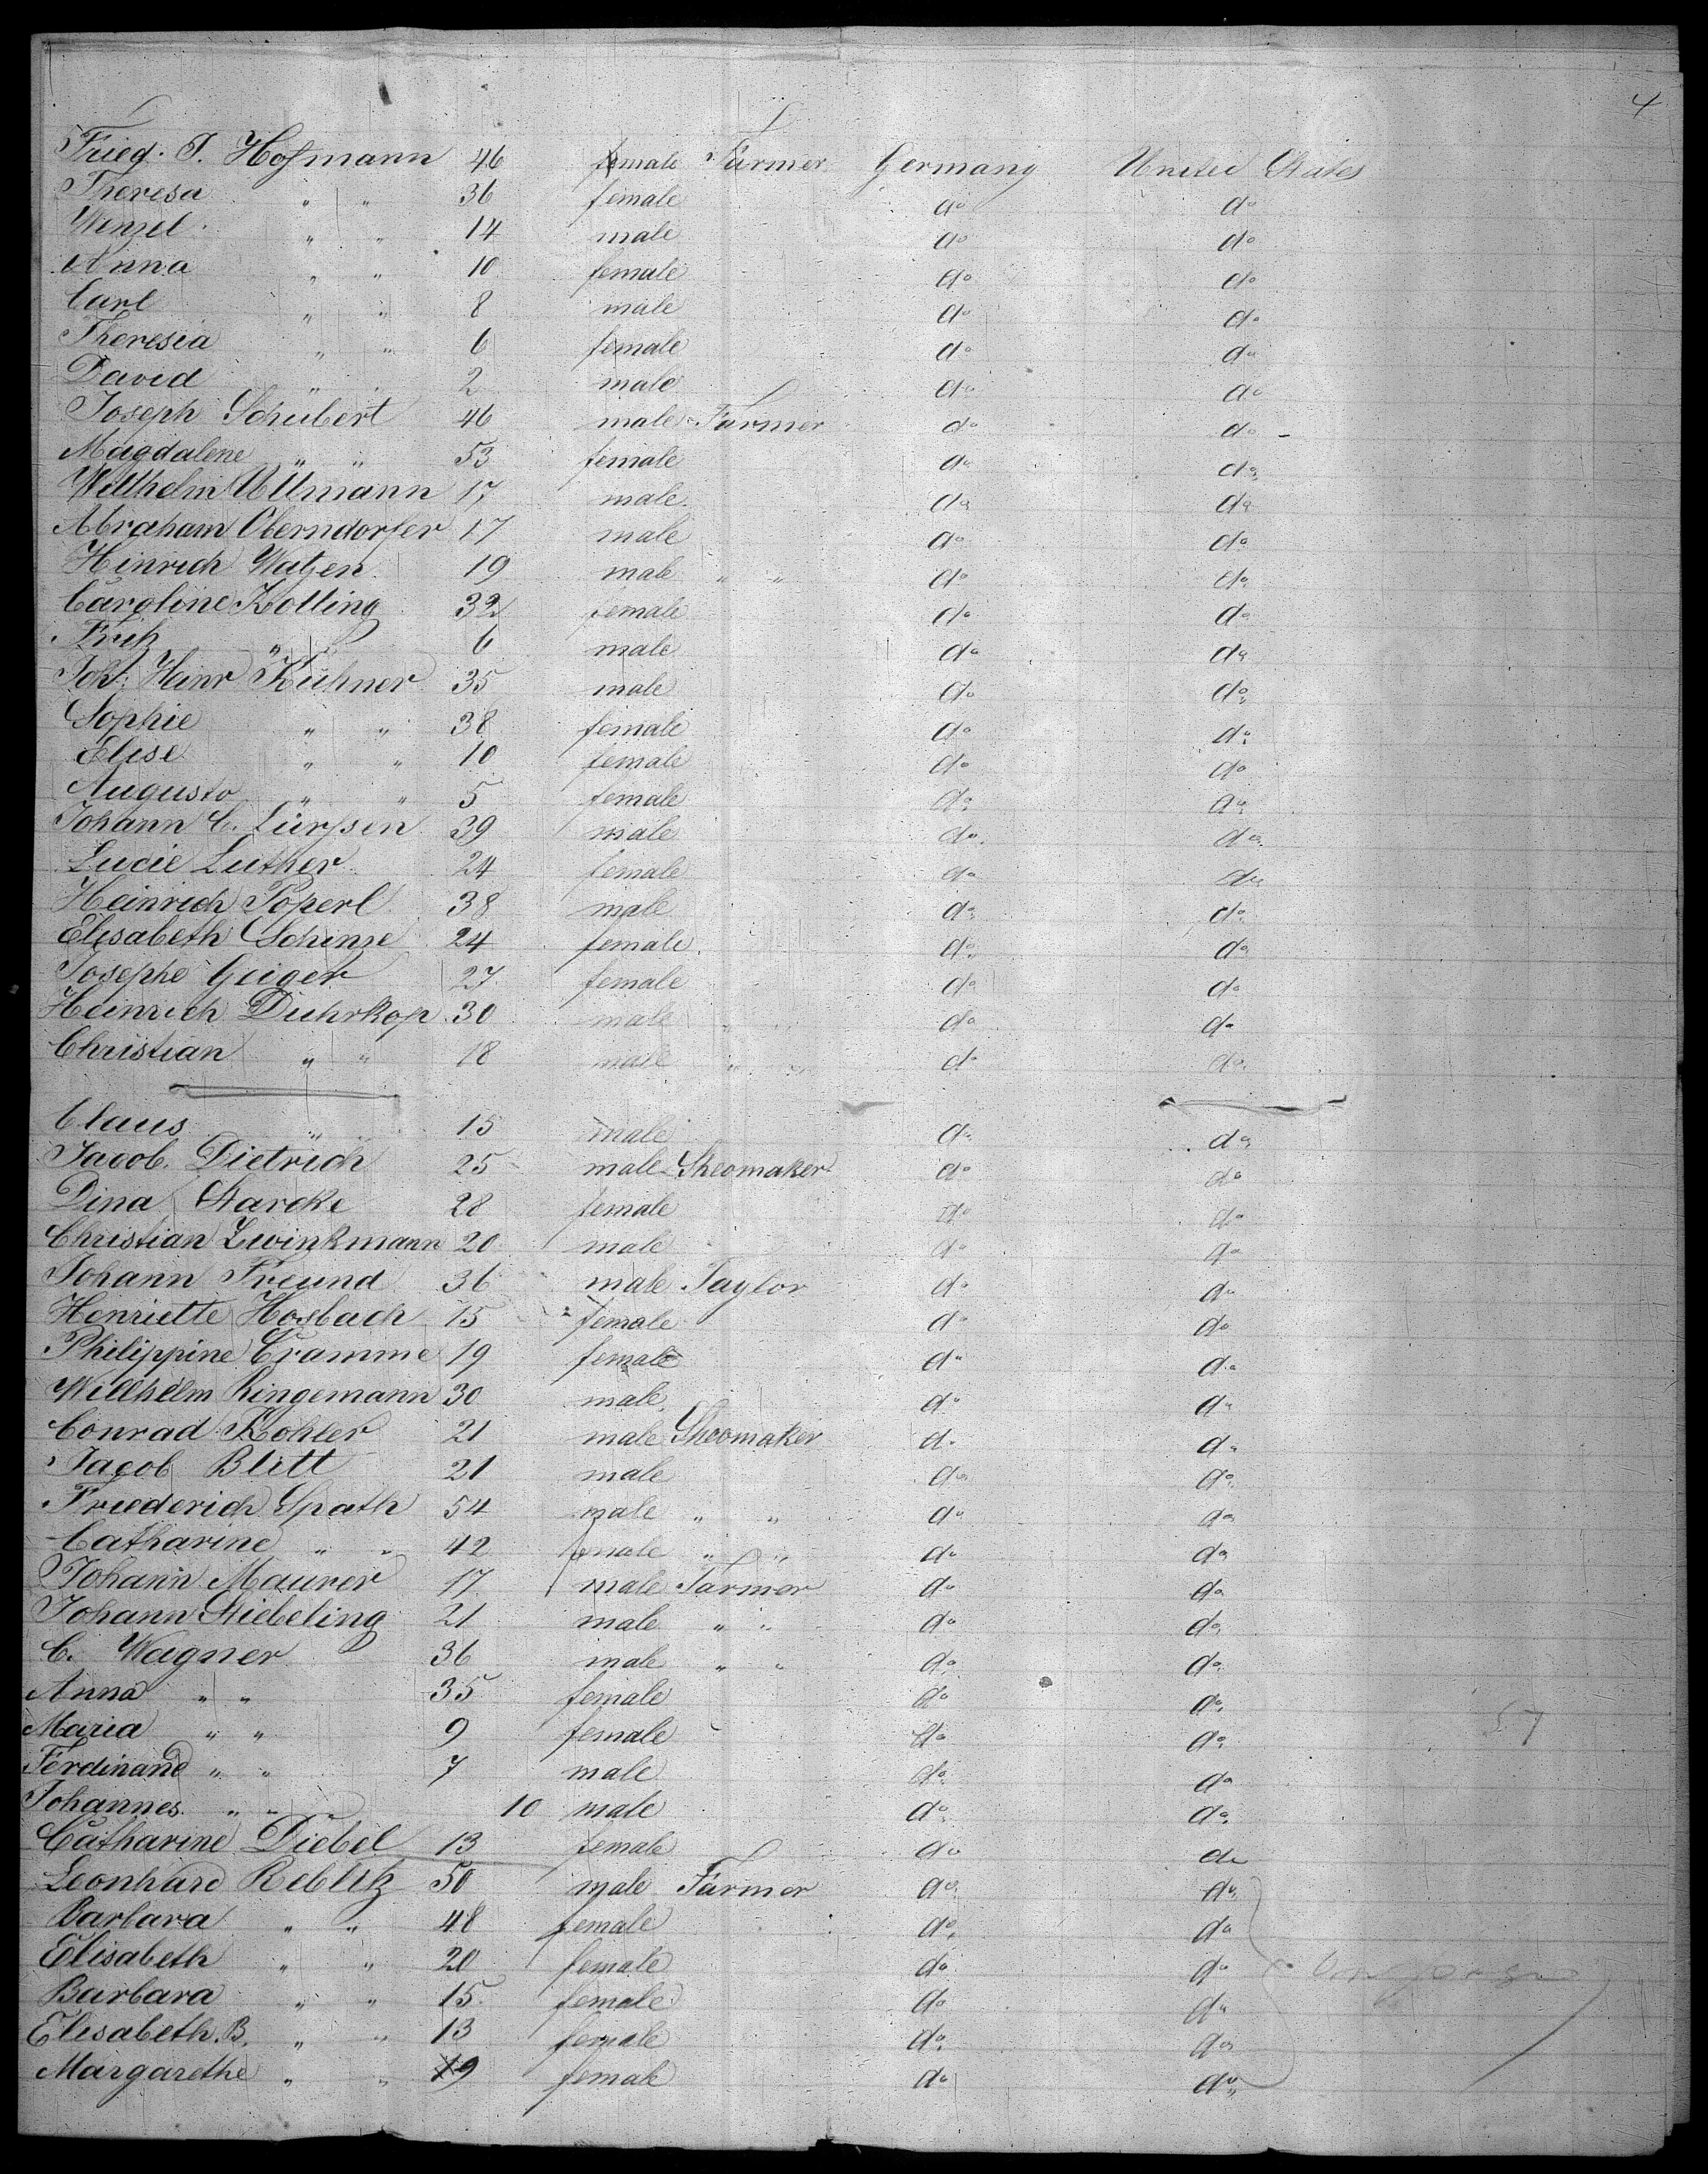 4
Fried. J. Hofmann 46 male Farmer Germany United States
Theresa " " 36 female do do
Wenzel " " 14 male do do
Anna " " 10 female do do
Carl " " 8 male do do
Theresia " " 6 female do do
David " " 2 male do do
Joseph Schubert 46 male Farmer do do
Magdalene " " 53 female do do
Willhelm Ullmann 17 male do do
Abraham Oberndorfer 17 male do do
Heinrich Watjen 19 male " " do do
Caroline Kolling 32 female do do
Fritz " " 6 male do do
Joh: Heinr Kühner 35 male do do
Sophie " " 38 female do do
Elise " " 10 female do do
Auguste " " 5 female do do
Johann C. Lürssen 39 male do do
Lucie Luther 24 female do do
Heinrich Poperl 38 male do do
Elisabeth 24 female do do
Josephe Geiger 27 female do do
Heinrich Duhrkop 30 male " do do
Christian " " 18 male " " do do
Claus " " 15 male do do
Jacob Dietrich 25 male Sheomaker do do
Dina Starcke 28 female do do
Christian Zwinkmann 20 male do do
Johann Freund 36 male Taylor do do
Henriette Hosbach 15 female do do
Philippine Cramme 19 female do do
Willhelm Ringemann 30 male do do
Conrad Kohler 21 male Sheomaker do do
Jacob Blitt 21 male do do
Friederich Spath 54 male " " do do
Catharine " " 42 female " " do do
Johann Maurer 17 male Farmer do do
Johann Stiebeling 21 male " " do do
C. Wagner 36 male " " do do
Anna " " 35 female do do
Maria " " 9 female do do 57
Ferdinand " " 7 male do do
Johannes " " 10 male do do
Catharine Diebel 13 female do do
Leonhard Reblitz 50 male Farmer do do
Barbara " " 48 female do do
Elisabeth " " 20 female do do
Barbara " " 15 female do do
Elisabeth B. " " 13 female do do
Margarethe " " 9 female do do